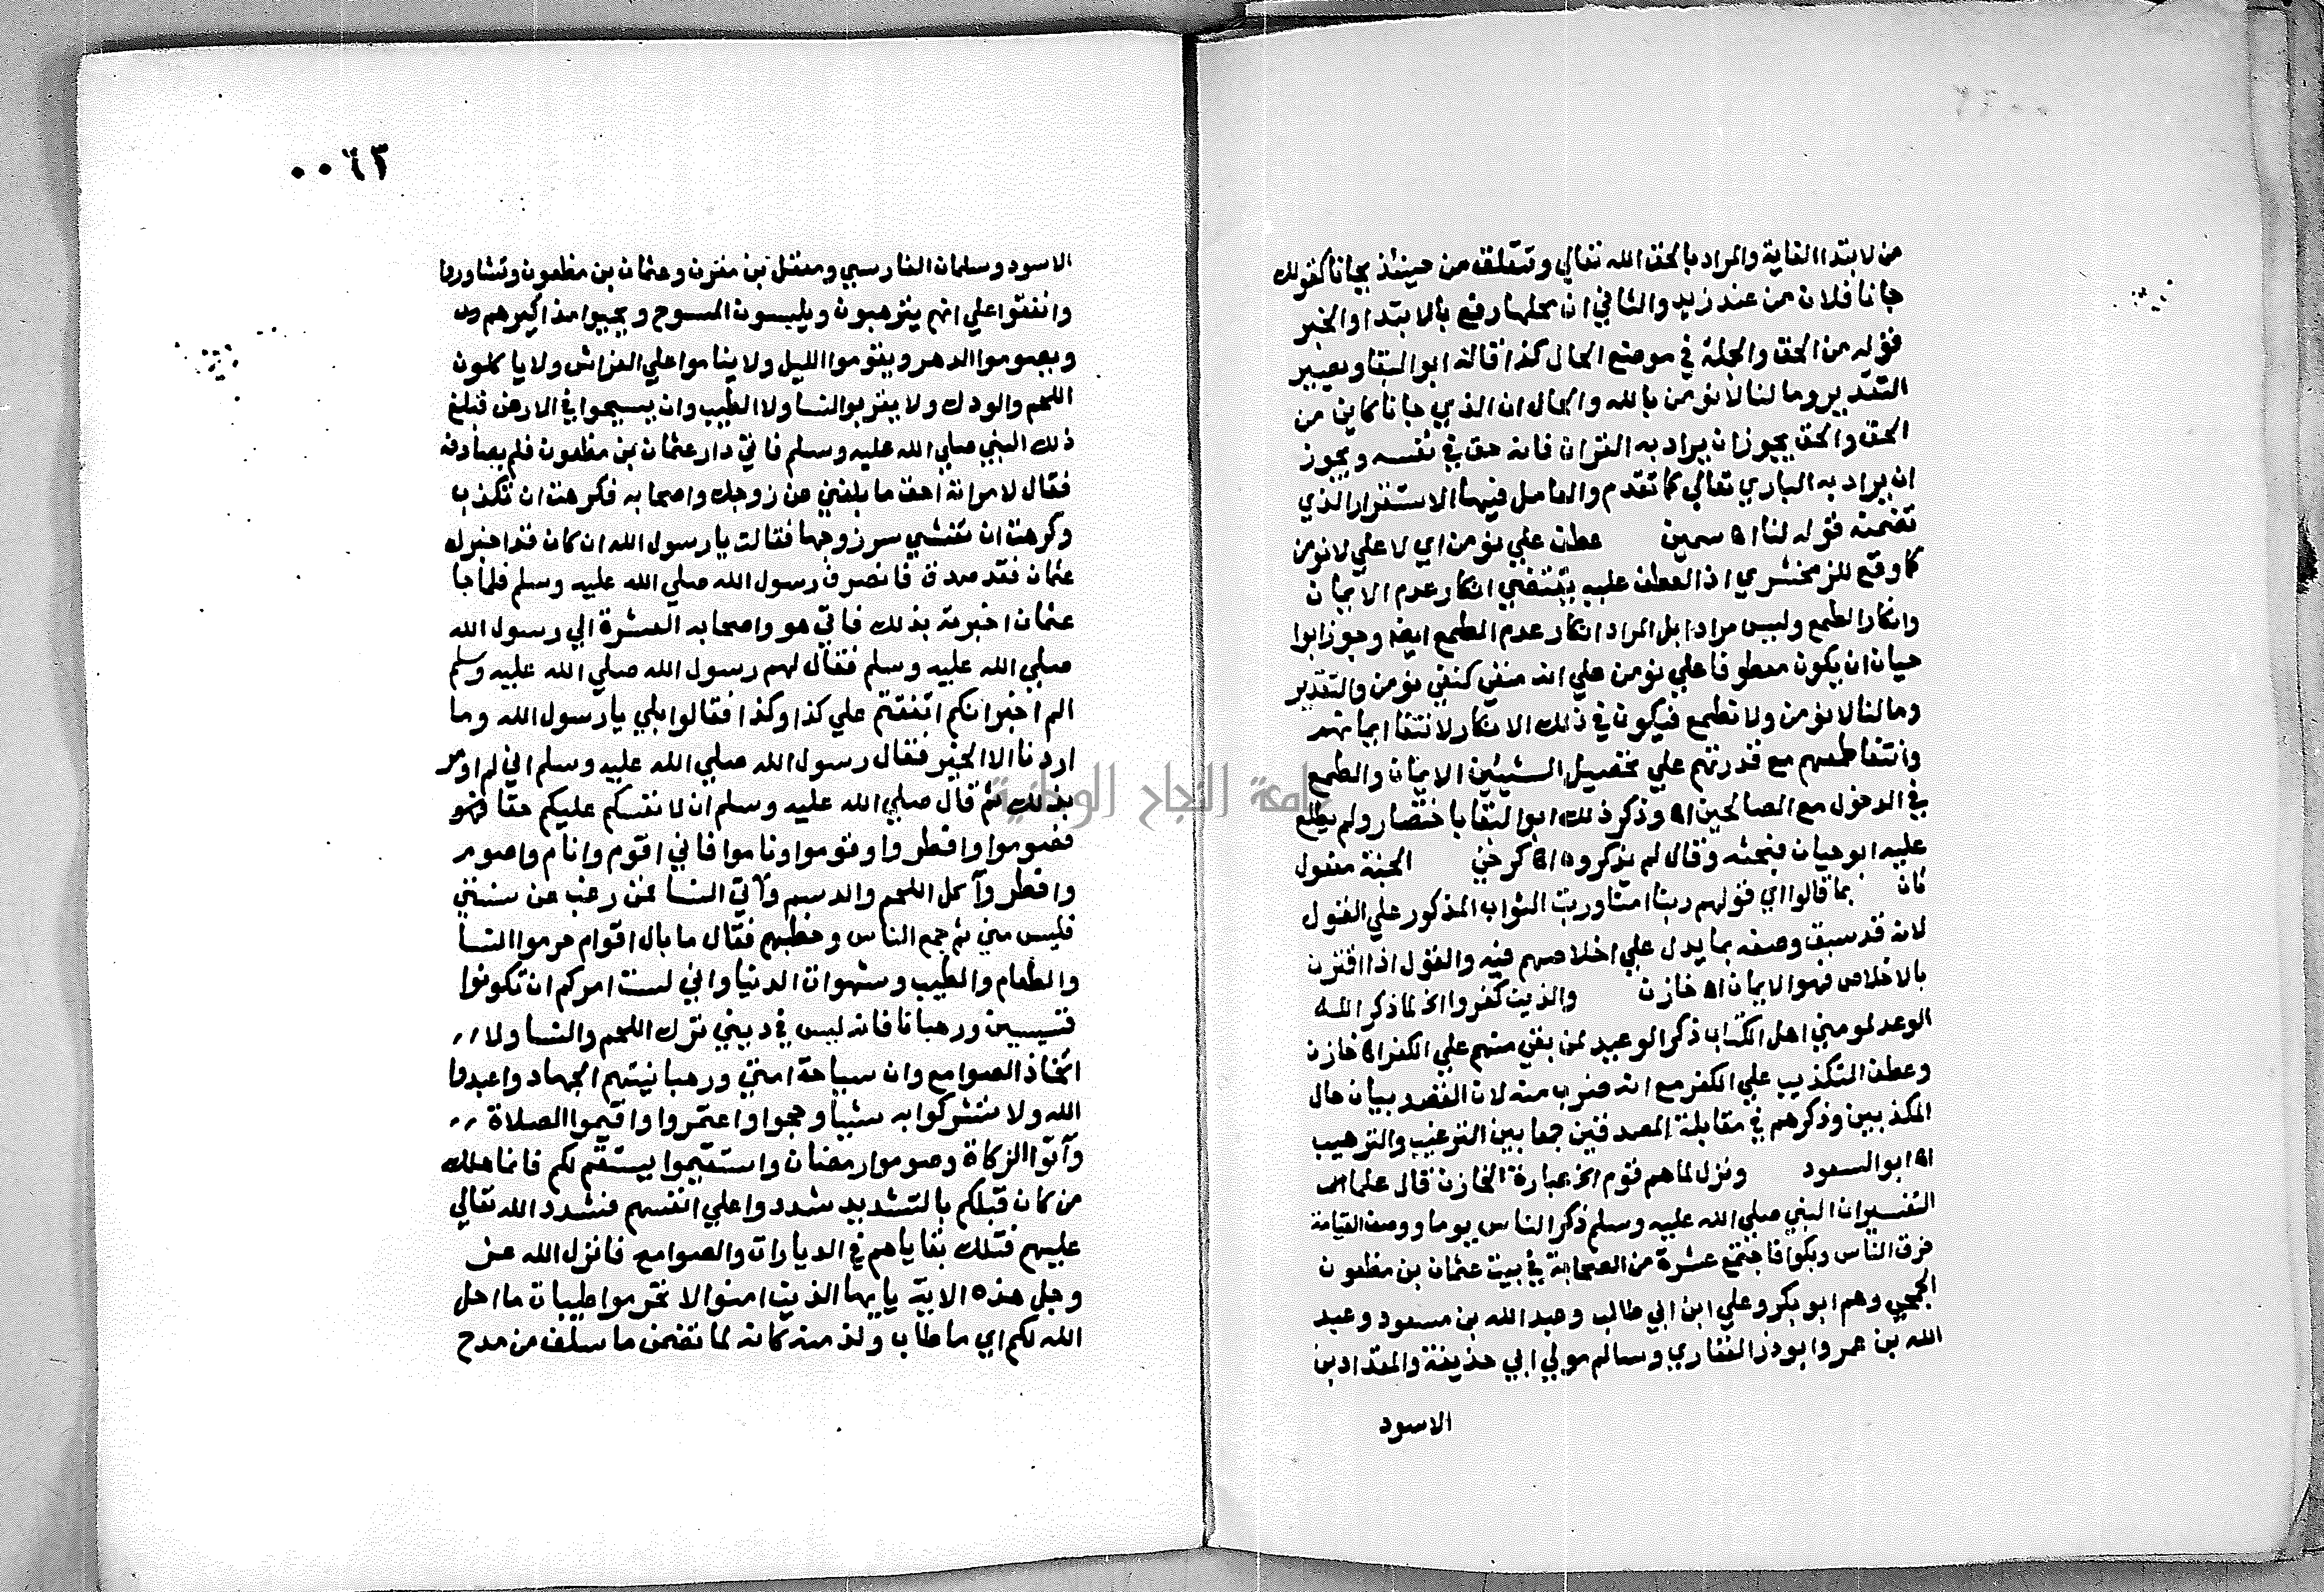 من لابتدا الغاية والمراد بالحق الله تعالي وتتعلق من حينئذ بجانا كقولك
جانا فلان من عند زيد والثاني ان محلها رفع بالابتدا والخبر
قوله من الحق والجملة في موضع الحال كذا قاله ابو البقا ويصير
التقدير وما لنا لا نؤمن بالله والحال ان الذي جانا كاين من
الحق والحق يجوز ان يراد به القران فانه حق في نفسه ويجوز
ان يراد به الباري تعالي كما تقدم والعامل فيها الاستقرار الذي
تضمنه قوله لنا اه سمين عطف علي نومن اي لا علي لا نومن
كما وقع للزمخشري اذ العطف عليه يقتضي انكار عدم الايمان
وانكار الطمع وليس مراد ابل المراد انكار عدم الطمع ايضا وجوز ابوا
حيان ان يكون معطوفا علي نومن علي انه منفي كنفي نومن والتقدير
وما لنا لا نؤمن ولا نطمع فيكون في ذلك الانكار لانتفا ايمانهم
وانتفا طمعهم مع قدرتهم علي تحصيل الشيئين الايمان والطمع
في الدخول مع الصالحين اه وذكر ذلك ابوا البقا باختصار ولم يطلع
عليه ابو حيان فبحثه وقال لم يذكروه اه كرخي الجنة مفعول
ثان بما قالوا اي قولهم ربنا امنا ورتب الثواب المذكور علي القول
لانه قد سبق وصفه بما يدل علي اخلاصهم فيه والقول اذا اقترن
بالاخلاص فهو الايمان اه خازن والذين كفروا الخ لما ذكر الله
الوعد لمومني اهل الكتاب ذكر الوعيد لمن بقي منهم علي الكفر اه خازن
وعطف التكذيب علي الكفر مع انه ضرب منه لان القصد بيان حال
المكذبين وذكرهم في مقابلة المصدقين جمعا بين الترغيب والترهيب
اه ابو السعود ونزل لما هم قوم الخ عبارة الخازن قال علما
التفسير ان النبي صلي الله عليه وسلم ذكر الناس يوما ووصف القيامة
فرق الناس وبكوا فاجتمع عشرة من الصحابة في بيت عثمان بن مظعون
الجمحي وهم ابو بكر وعلي ابن ابي طالب وعبد الله بن مسعود وعبد
الله بن عمر وابو ذر الغفاري وسالم مولي ابي حذيفة والمقداد بن
الاسود
٠٠٦٣
الاسود وسلمان الفارسي ومعقل بن مقرن وعثمان بن مظعون وتشاوروا
واتفقوا علي انهم يترهبون ويلبسون المسوح ويجبوا مذاكيرهم
ويصوموا الدهر ويقوموا الليل ولا يناموا علي الفراش ولا ياكلون
اللحم والودك ولا يقربوا النسا ولا الطيب وان يسيحوا في الارض فبلغ
ذلك النبي صلي الله عليه وسلم فاتي دار عثمان بن مظعون فلم يصادفه
فقال لامراته احق ما بلغني عن زوجك واصحابه فكرهت ان تكذب
وكرهت ان تفشي سر زوجها فقالت يا رسول الله ان كان قد اخبرك
عثمان فقد صدق فانصرف رسول الله صلي الله عليه وسلم فلما جا
عثمان اخبرته بذلك فاتي هو واصحابه العشرة الي رسول الله
صلي الله عليه وسلم فقال لهم رسول الله صلي الله عليه وسلم
الم اخبر انكم اتفقتم علي كذا وكذا فقالوا بلي يا رسول الله وما
اردنا الا الخير فقال رسول الله صلي الله عليه وسلم اني لم اومر
بذلك ثم قال صلي الله عليه وسلم ان لانفسكم عليكم حقا
فصوموا وافطروا وقوموا وناموا فاني اقوم وانام واصوم
وافطر وآكل اللحم والدسم وآتي النسا فمن رغب عن سنتي
فليس مني ثم جمع الناس وخطبهم فقال ما بال اقوام حرموا النسا
والطعام والطيب وشهوات الدنيا واني لست امركم ان تكونوا
قسيسين ورهبانا فانه ليس في ديني ترك اللحم والنسا ولا
اتخاذ الصوامع وان سياحة امتي ورهبانيتهم الجهاد واعبدوا
الله ولا تشركوا به شيئا وحجوا واعتمروا واقيموا الصلاة
وآتوا الزكاة وصوموا رمضان واستقيموا يستقم لكم فانما هلك
من كان قبلكم بالتشديد شددوا علي انفسهم فشدد الله تعالي
عليهم فتلك بقاياهم في الديارات والصوامع فانزل الله عز
وجل هذه الاية يايها الذين امنوا لا تحرموا طيبات ما احل
الله لكم اي ما طاب ولذ منه كانه لما تضمن ما سلف من مدح
جامعة النجاح الوطنية